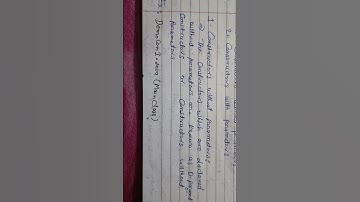 2. Constructors with parameters
1. Constructors without parameters
The Constructors which are declared
without parameters are known as Default
Constructors or Constructors without
Parameters.
Ex: DemoCon1.java (Main Class)